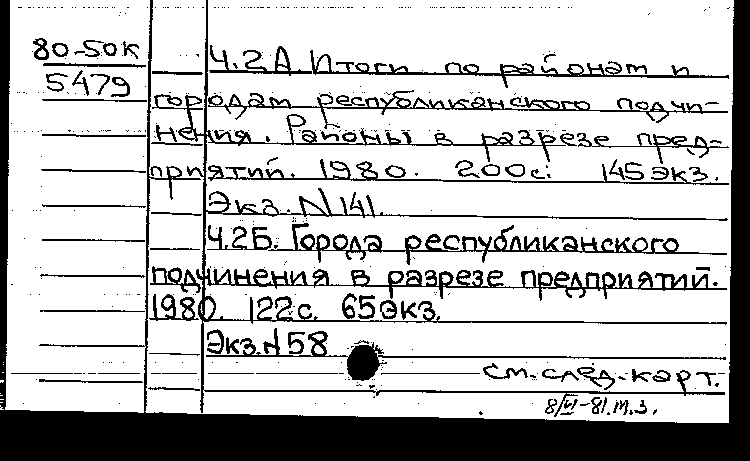 80-50К
5479
Ч.2А. Итоги по районам и
городам республиканского подчи-
нения. Районы в разрезе пред-
приятий. 1980. 200с. 145экз.
Экз. N 141.
Ч.2Б. Города республиканского
подчинения в разрезе предприятий.
1980. 122с. 65экз.
Экз. N 58
см. след. карт.
8/VI-81. М.З.